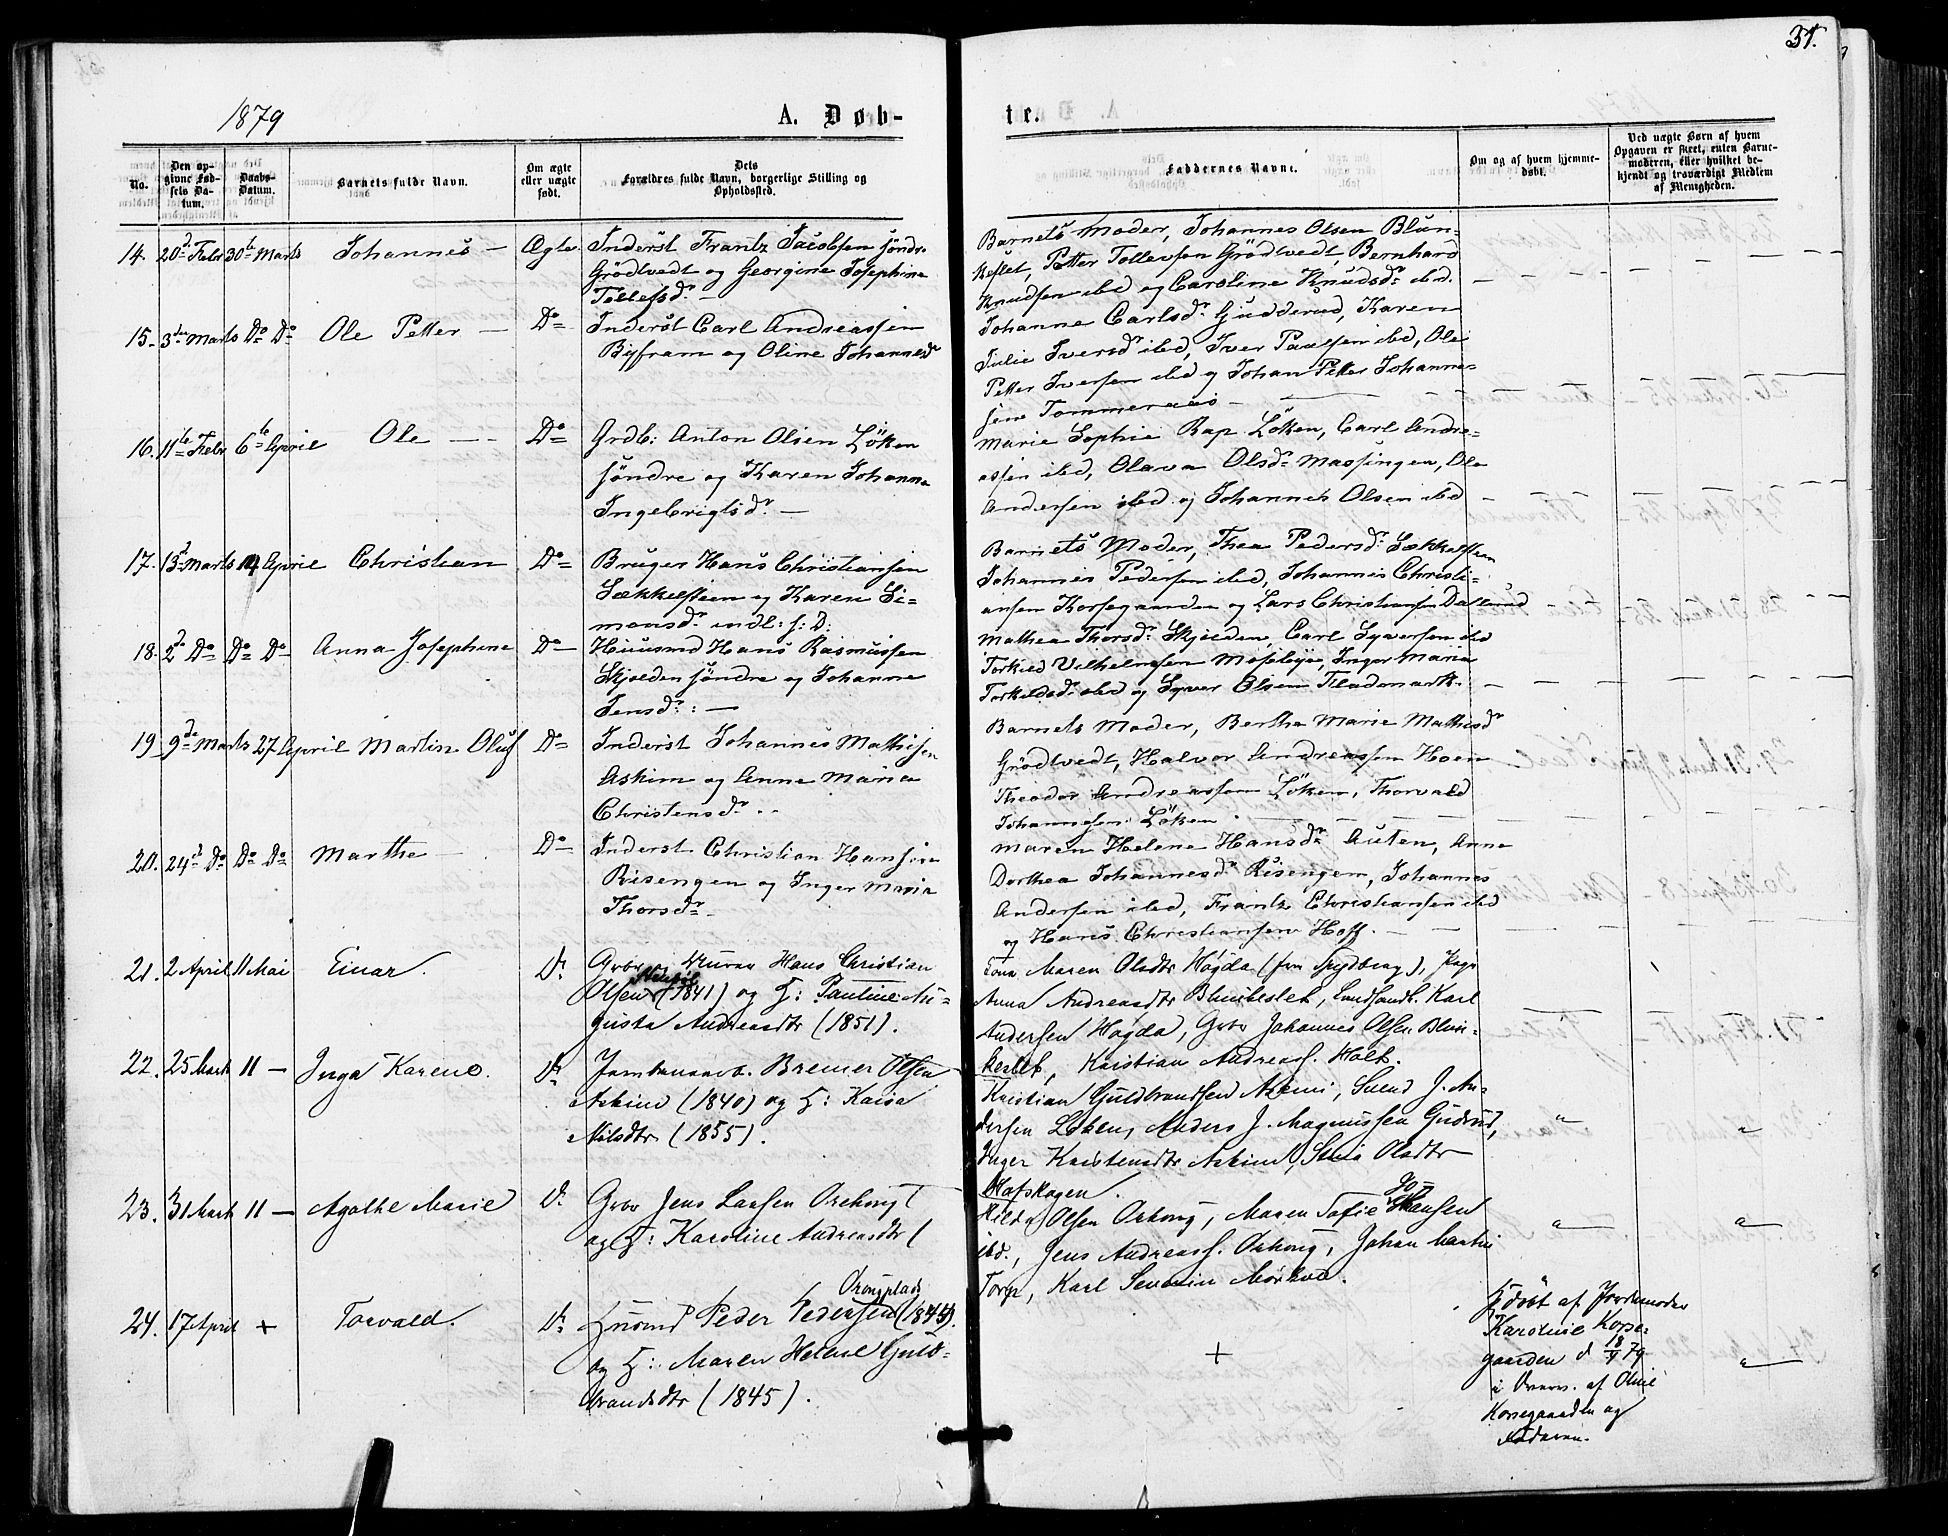 31.
1879
A. Døb-
te.
No.
Den opgivne Fødsels Datum.
Daabs-Datum.
Barnets fulde Navn.
Om ægte eller uægte født.
Dets Forældres fulde Navn, borgerlige Stilling og Opholdssted.
Faddernes Navne.
Om og af hvem hjemmedøbt.
Ved uægte Børn af hvem Opgaven er skeet, enten Barnemoderen, eller hvilket bekjendt og troværdigt Medlem af Menigheden.
14. 20de Febr 30te Marts Johannes — Ægte
Inderst Frantz Jacobsen søndre
Grödtvedt og Georgine Josephine
Tollefsdr. —
Barnets Moder, Johannes Olsen Blun-
keslet, Petter Tollevsen Grödtvedt, Bernhard
Knudsen ibd og Caroline Knudsdr ibd.
15. 3die Marts Do Do Ole Petter — Do
Inderst Carl Andreassen
Byfram og Oline Johannesdr
Johanne Carlsdr Gudderud, Karen
Julie Iversdr ibd, Iver Paulsen ibd, Ole
Petter Iversen ibd og Johan Petter Johanne-
sen Tommeraas —
16. 11te Febr 6te April Ole — Do
Grdb: Anton Olsen Löken
söndre og Karen Johanne
Ingebrigtsdr. —
Marie Sophie Rap. Löken, Carl Andre-
assen ibd, Olava Olsdr Massingen, Ole
Andersen ibd og Johannes Olsen ibd
17. 13de Marts 14 April Christian Do
Bruger Hans Christiansen
Sækkelsteen og Karen Si-
monsdr. indl: s: D:
Barnets Moder, Thea Pedersdr Sækkelsteen
Johannes Pedersen ibd, Johannes Christi-
ansen Korsegaarden og Lars Christiansen Dallerud
18. 2de Do Do Do Anna Josephine Do
Huusmd Hans Rasmussen
Skjolden söndre og Johanne
Jensdr: —
Mathea Thorsdr Skjolden, Carl Syversen ibd
Torkild Vilhelmsen Moseby, Inger Maria
Torkildsdr ibd og Syver Olsen Flademark.
19 9de Marts 27 April Martin Oluf Do
Inderst Johannes Mathisen
Askim og Anne Maria
Christensdr.
Barnets Moder, Berthe Marie Mathisdr
Grödtvedt, Halvor Andreassen Hoen
Theodor Andreassen Löken, Thorvald
Johannesen Löken.
20. 24de Do Do Do Marthe — Do
Inderst Christian Hansen
Risengen og Inger Maria
Thorsdr
Maren Helene Hansdr Auten, Anne
Dorthea Johannesdr Risengen, Johannes
Andersen ibd, Frantz Christiansen ibd
og Hans Christiansen Hoff.
21. 2 April 11 Mai Einar. Do
Gvbr og Murer Hans Christian
Olsen (1841) og H: Pauline Au-
gusta Andreasdtr (1851).
Kona Maren Olsdtr Högda (fra Spydberg), Pige
Anna Andreasdtr Blunkeslet, Landhandl. Karl
Andersen Högda, Gvbr Johannes Olsen Blun-
keslet, Kristian Andreass. Holt.
22. 25 Marts 11 — Inga Karine. Do
Jernbanearb. Bremer Olsen
Askim (1840) og H: Kaisa
Nilsdtr (1855).
Kristian Guldbrandsen Askim, Svend J. An-
dersen Löken, Anders J. Magnussen Gudrud,
Inger Kristensdtr Askim, Stina Olsdtr
Hafskogen.
23. 31 Marts 11 — Agathe Marie Do
Gvbr Jens Larsen Oshoug
og H: Karoline Andreasdtr (
Hilda Olsen Oshoug, Maren Sofie Johansen
ibd., Jens Andreass. Oshoug, Johan Martin
Torp, Karl Severin Mörkved.
24. 17 April + Torvald. Do
Husmd Peder Pedersen (1844).
og H: Maren Helene Guld-
brandsdtr (1845).
+
Hjdöbt af Jordemoder
Karoline Korse-
gaarden d 18/4 79
i Overv. af Oline
Korsegaarden og
Faderen.